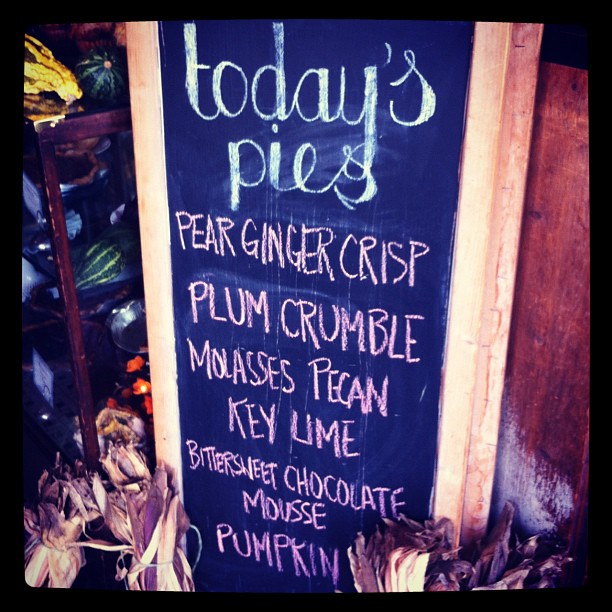 today's
pies
PEAR GINGER CRISP
PLUM CRUMBLE
MOLASSES PECAN
KEY LIME
BITTERSWEET CHOCOLATE
MOUSSE
PUMPKIN